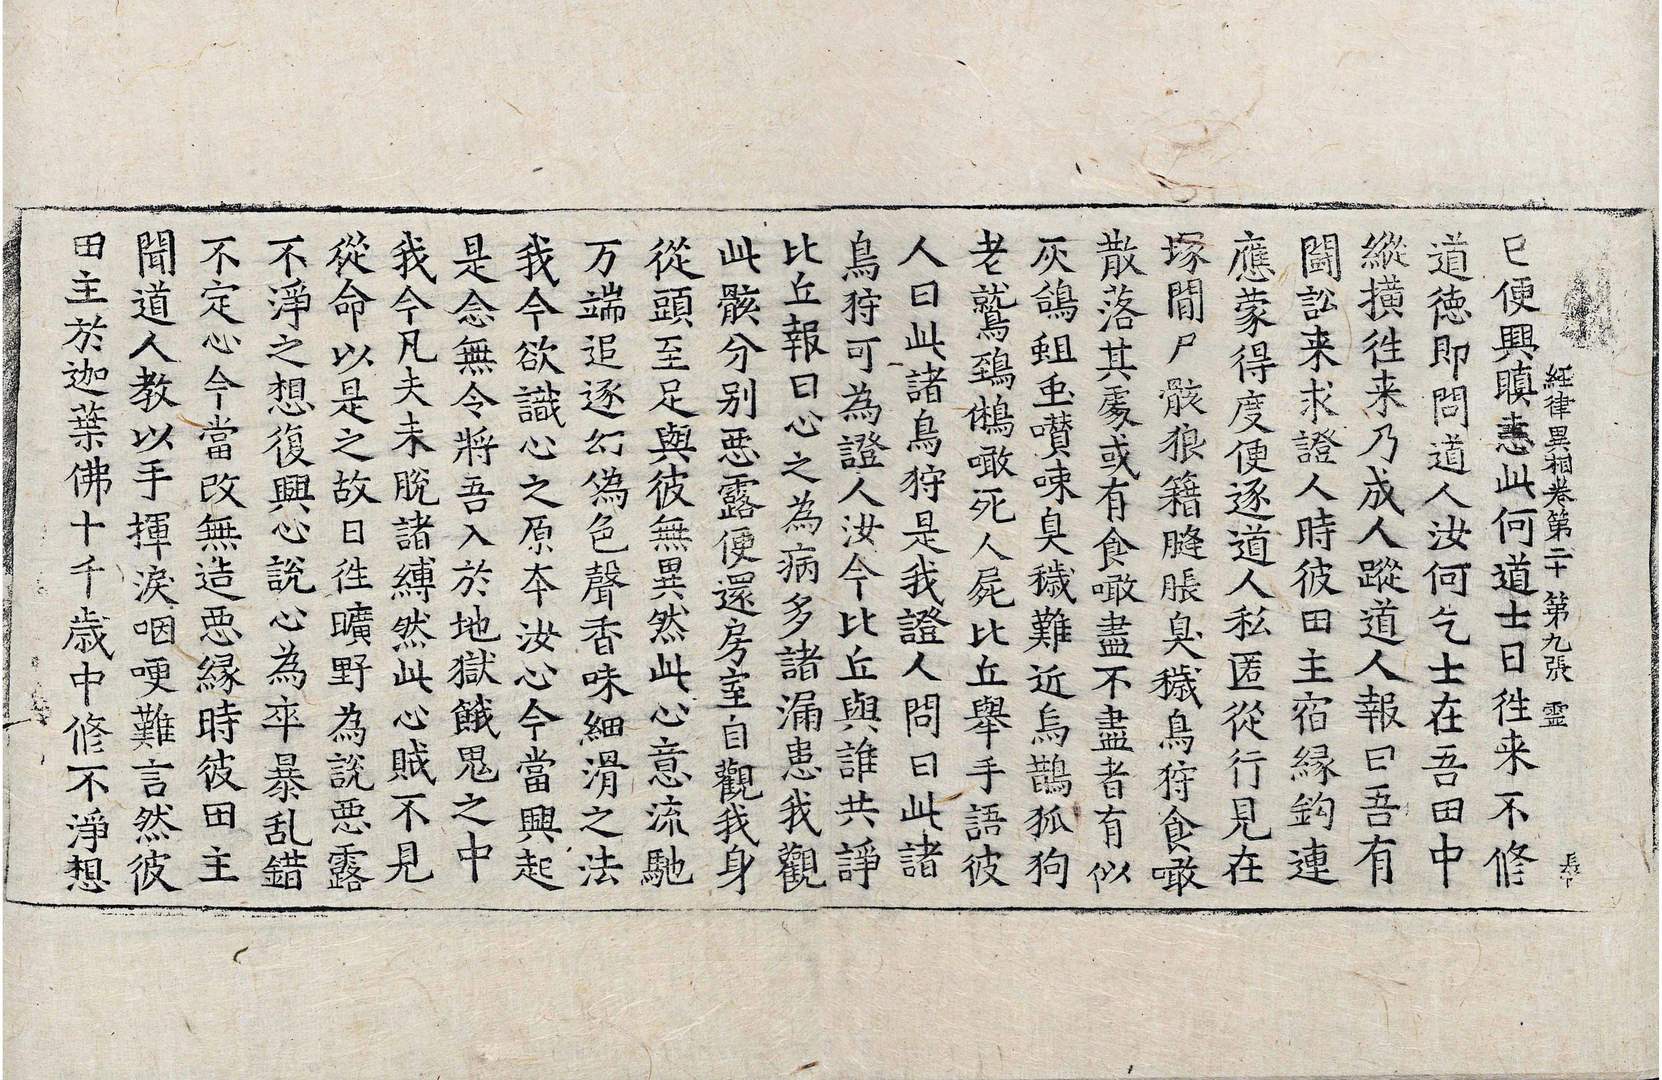 経律異相卷第二十 第九張 霊
已便興瞋恚此何道士日徃来不修
道徳即問道人汝何乞士在吾田中
縱撗徃来乃成人蹤道人報曰吾有
鬪訟来求證人時彼田主宿縁鈎連
應蒙得度便逐道人私匿從行見在
塚間尸骸狼籍膖脹臭穢鳥狩食噉
散落其處或有食噉盡不盡者有似
灰鴿蛆虫囋唻臭穢難近烏鵲狐狗
老鷲鵄鵂噉死人屍比丘舉手語彼
人曰此諸鳥狩是我證人問曰此諸
鳥狩可為證人汝今比丘與誰共諍
比丘報曰心之為病多諸漏患我觀
此骸分别惡露便還房室自觀我身
從頭至足與彼無異然此心意流馳
万端追逐幻偽色聲香味細滑之法
我今欲識心之原夲汝心今當興起
是念無令將吾入於地獄餓鬼之中
我今凡夫未脫諸縛然此心賊不見
從命以是之故日徃曠野為説惡露
不淨之想復興心説心為卒暴乱錯
不定心今當改無造惡緣時彼田主
聞道人教以手揮淚咽哽難言然彼
田主於迦葉佛十千歲中修不淨想